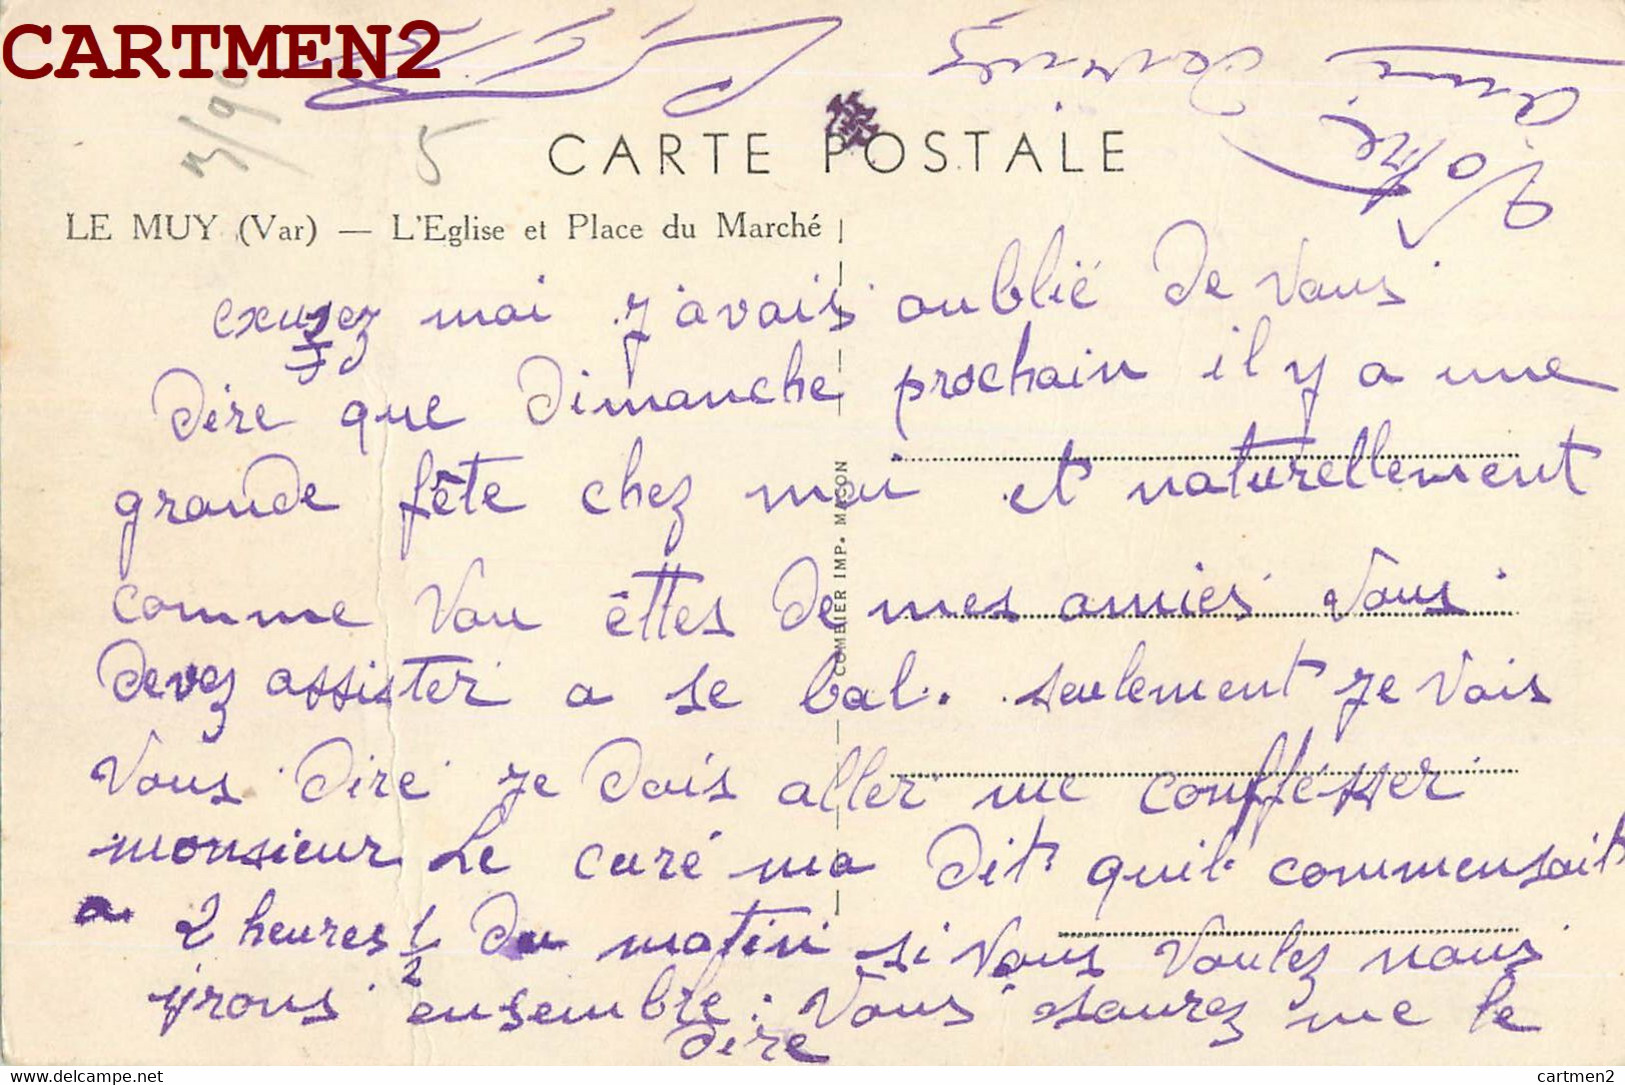 CARTMEN2
3/90
5
CARTE POSTALE
LE MUY (Var) — L'Eglise et Place du Marché
exusez moi j'avais oublié de vous
dire que dimanche prochain il y a une
grande fête chez moi et naturellement
comme vou êttes de mes amies vous
devez assister a se bal. seulement je vais
vous dire je dois aller me conffésser
monsieur le curé ma dit quil commensait
a 2 heures 1/2 du matin si vous voulez nous
yrons ensemble : vous saurez me le
dire
Votre
amie
COMBIER IMP. MACON
delcampe.net
cartmen2